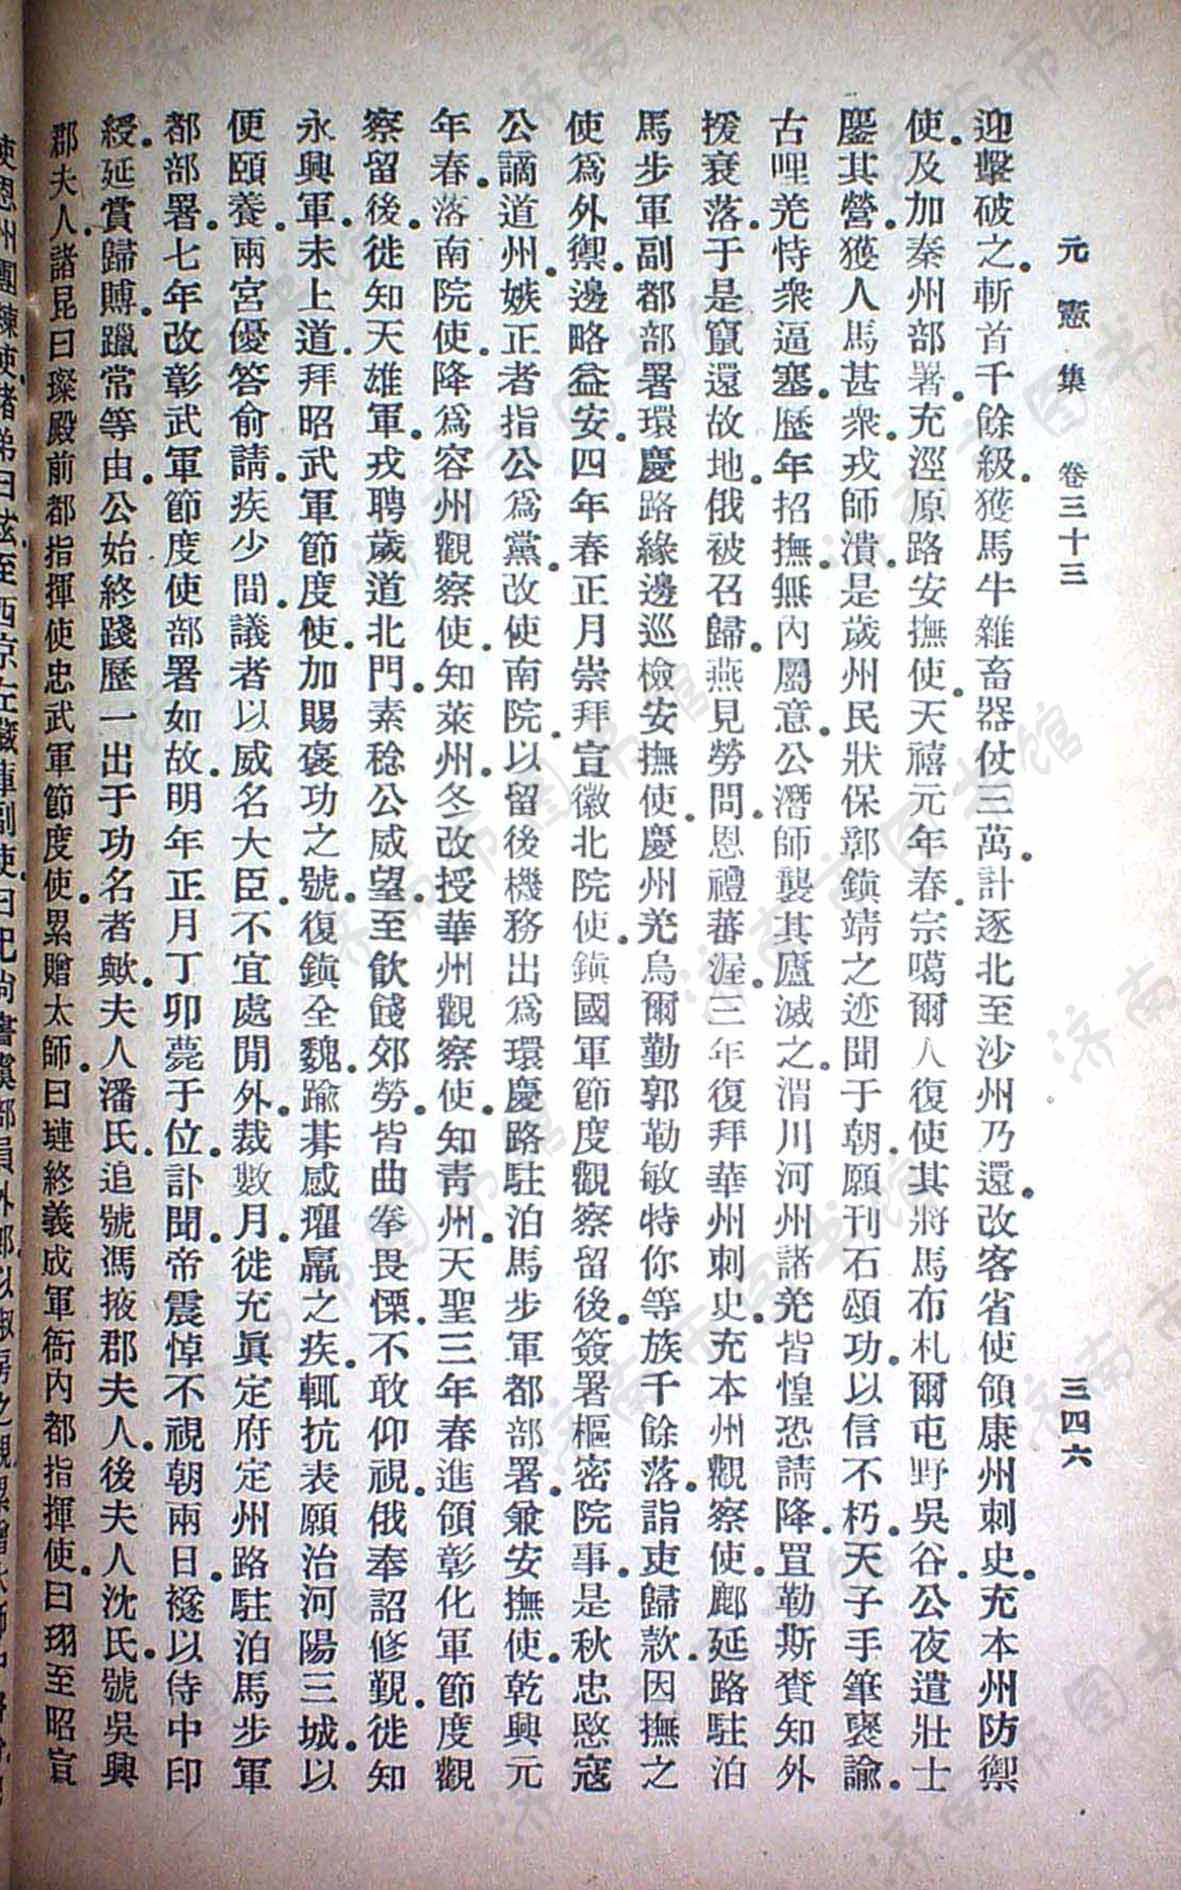 元憲集　卷三十三　三四六
迎擊破之。斬首千餘級。獲馬牛雜畜器仗三萬。計逐北至沙州乃還。改客省使。領康州刺史。充本州防禦
使。及加秦州部署。充涇原路安撫使。天禧元年春。宗噶爾人復使其將馬布札爾屯野吳谷。公夜遣壯士
鏖其營。獲人馬甚衆。戎師潰。是歲州民狀保鄣鎮靖之迹聞于朝。願刊石頌功。以信不朽。天子手筆襃諭。
古哩羌恃衆逼塞。歷年招撫。無內屬意。公潛師襲其廬滅之。渭川河州諸羌皆惶恐請降。罝勒斯賚知外
援衰落。于是竄還故地。俄被召歸。燕見勞問。恩禮蕃渥。三年復拜華州刺史。充本州觀察使。鄜延路駐泊
馬步軍副都部署。環慶路緣邊巡檢安撫使。慶州羌烏爾勤郭勒敏特你等族千餘落。詣吏歸款。因撫之
使爲外禦。邊略益安。四年春正月崇拜宣徽北院使。鎮國軍節度觀察留後。簽署樞密院事。是秋忠愍寇
公謫道州。嫉正者指公爲黨。改使南院。以留後機務出爲環慶路駐泊馬步軍都部署。兼安撫使。乾興元
年春。落南院使。降爲容州觀察使。知萊州。冬改授華州觀察使。知青州。天聖三年春。進領彰化軍節度觀
察留後。徙知天雄軍。戎聘歲道北門。素稔公威望。至飮餞郊勞。皆曲拳畏慄。不敢仰視。俄奉詔修覲。徙知
永興軍。未上道。拜昭武軍節度使。加賜褒功之號。復鎮全魏。踰朞感癯羸之疾。輒抗表願治河陽三城。以
便頤養。兩宮優答俞請。疾少間。議者以威名大臣。不宜處閒外。裁數月。徙充眞定府定州路駐泊馬步軍
都部署。七年改彰武軍節度使。部署如故。明年正月丁卯薨于位。訃聞。帝震悼。不視朝兩日。襚以侍中印
綬。延賞歸賻。躐常等。由公始終踐歷。一出于功名者歟。夫人潘氏。追號馮掖郡夫人。後夫人沈氏。號吳興
郡夫人。諸昆曰璨。殿前都指揮使忠武軍節度使。累贈太師。曰璉。終義成軍衙內都指揮使。曰珝。至昭宣